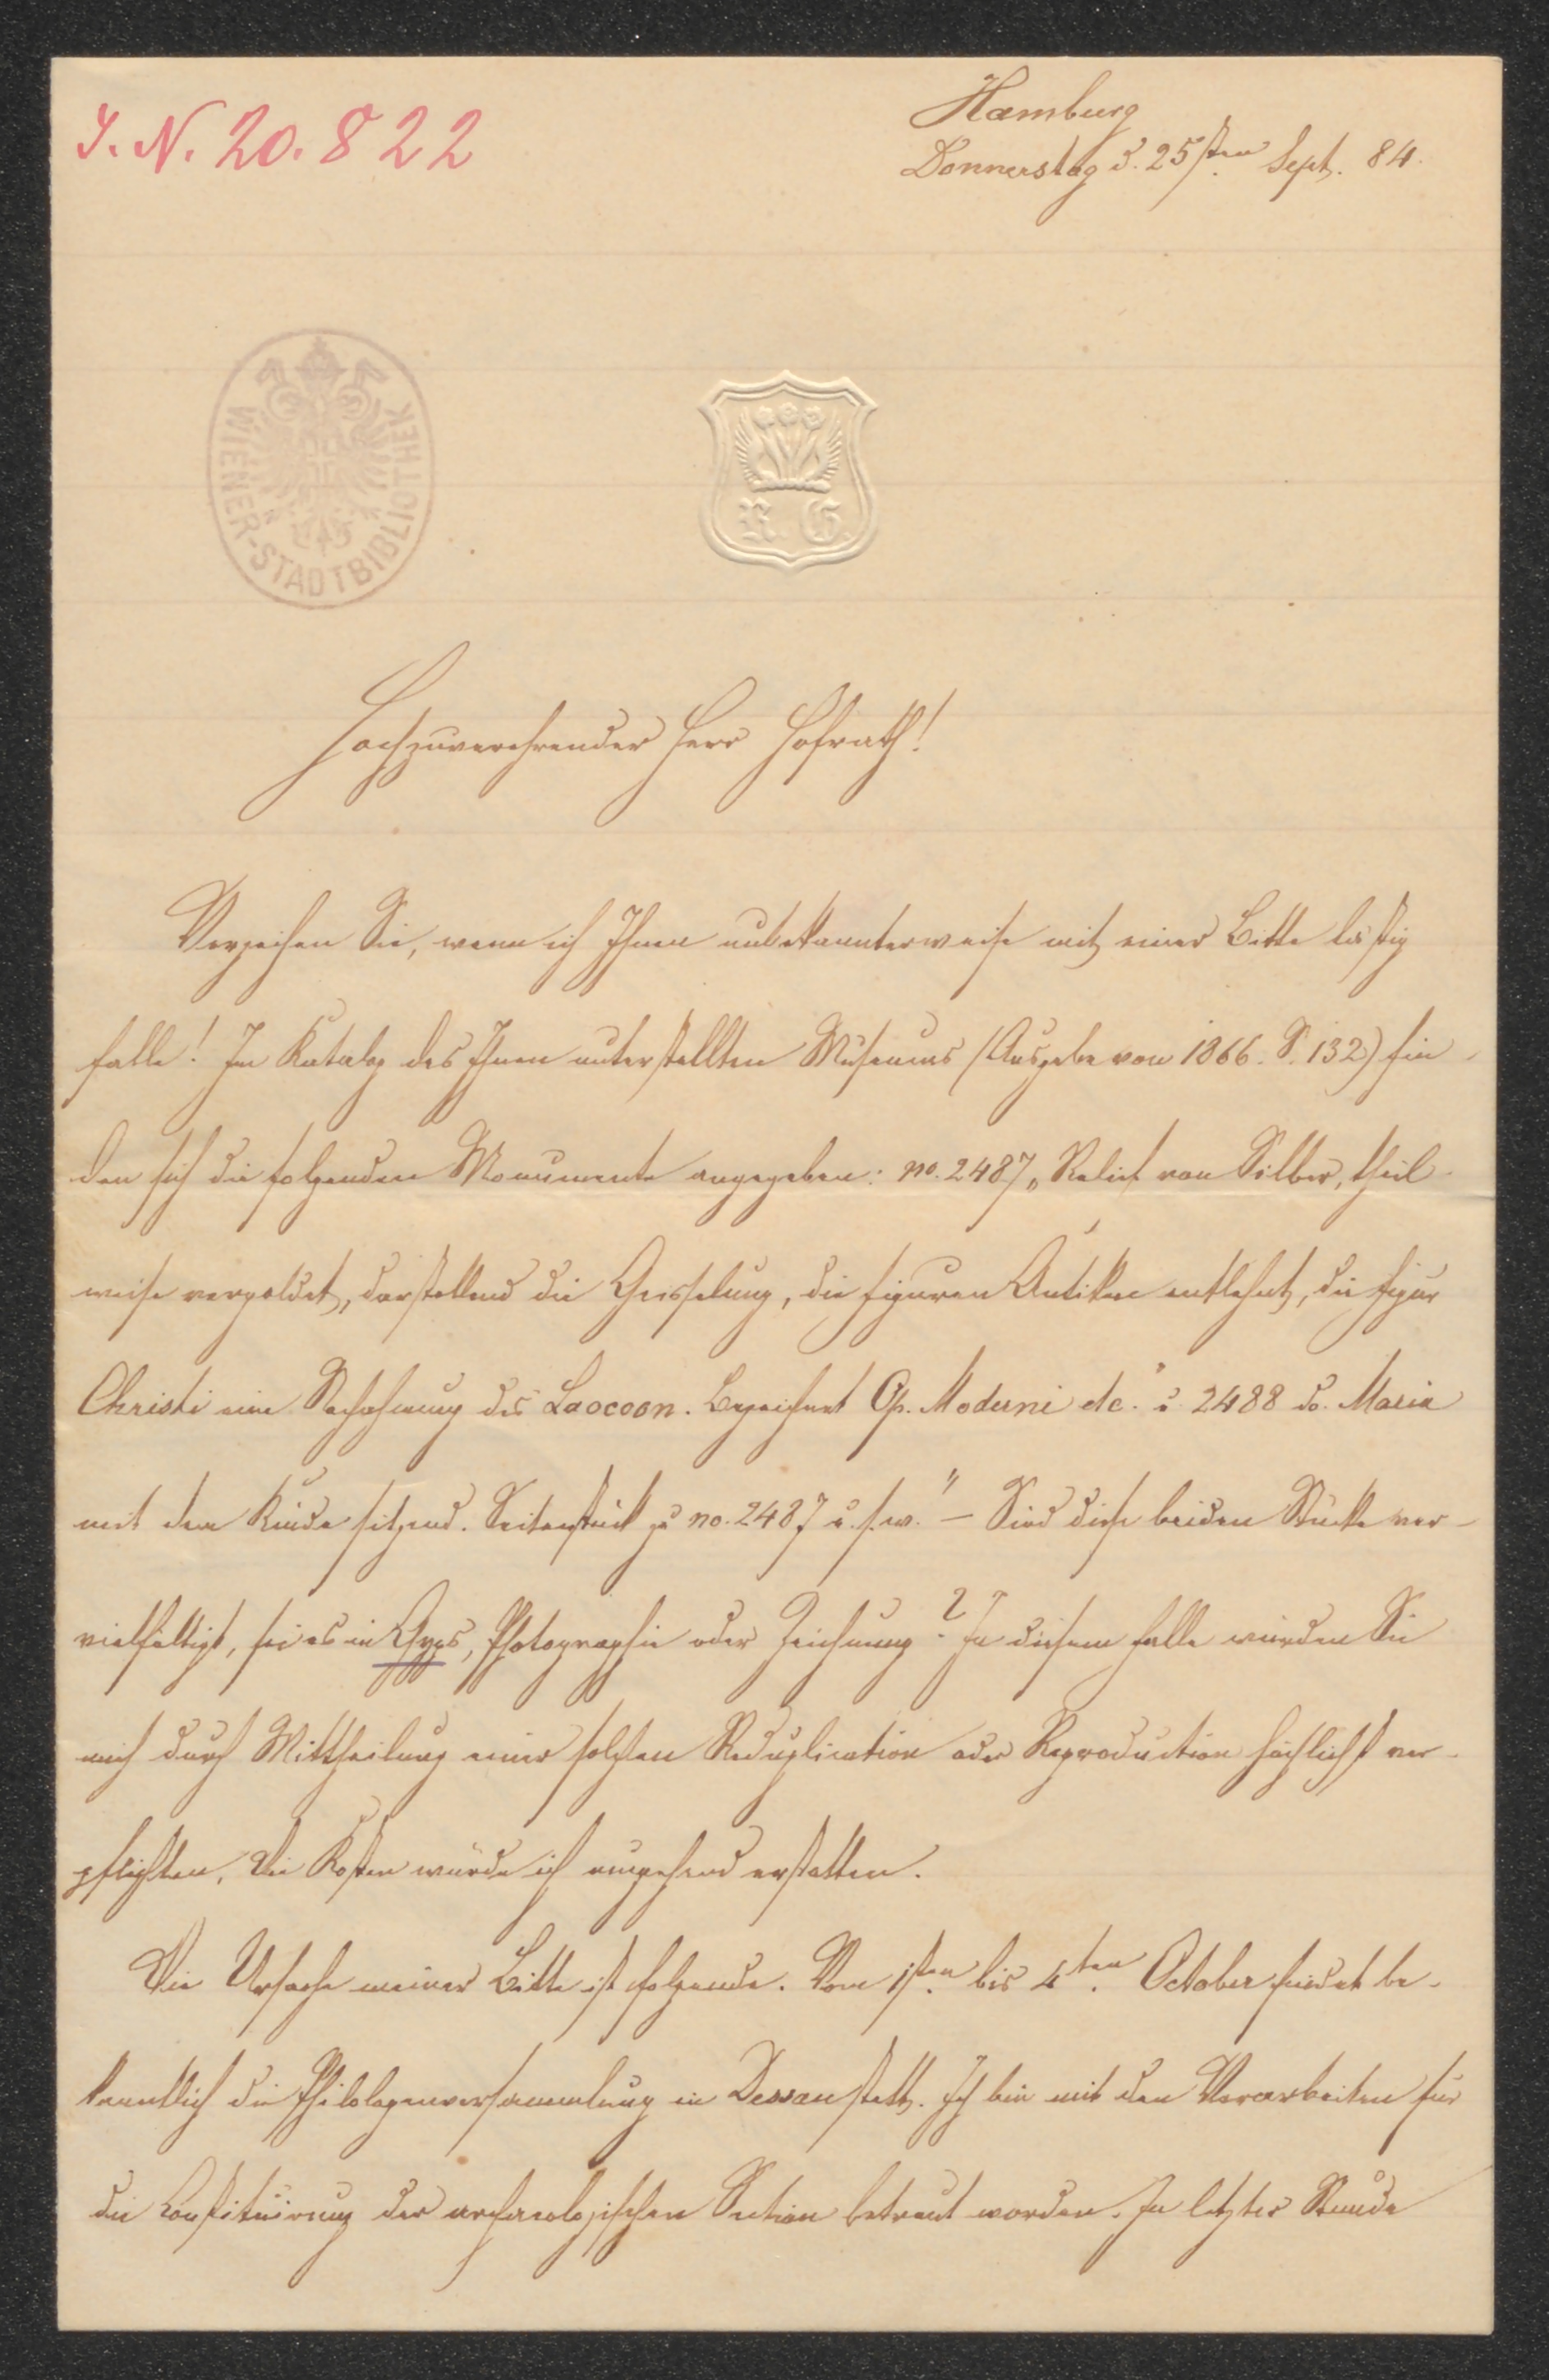 J. N. 20.822
Hamburg
Donnerstag d. 25sten Sept. 84.
WIENER-STADTBIBLIOTHEK
R G
Hochzuverehrender Herr Hofrath!
Verzeihen Sie, wenn ich Ihnen unbekannterweise mit einer Bitte lästig
falle! Im Katalog des Ihnen unterstellten Museums (Ausgabe von 1866. S. 132) fin-
den sich die folgenden Monumente angegeben: no. 2487 „Relief von Silber, theil-
weise vergoldet, darstellend die Geisselung, die Figuren Antiken entlehnt, die Figur
Christi eine Nachahmung des Laocoon. Bezeichnet Op. Moderni etc." u. 2488 do. Maria
mit dem Kinde sitzend. Seitenstück zu no. 2487 u. s. w." – Sind diese beiden Stücke ver-
vielfältigt, sei es in Gyps, Photographie oder Zeichnung? In diesem Falle würden Sie
mich durch Mittheilung einer solchen Reduplication oder Reproduction höchlichst ver-
pflichten. Die Kosten würde ich umgehend erstatten.
Die Ursache meiner Bitte ist folgende. Vom 1sten bis 4ten October findet be-
kanntlich die Philologenversammlung in Dessau statt. Ich bin mit den Vorarbeiten für
die Constituirung der archaeologischen Section betraut worden. In letzter Stunde